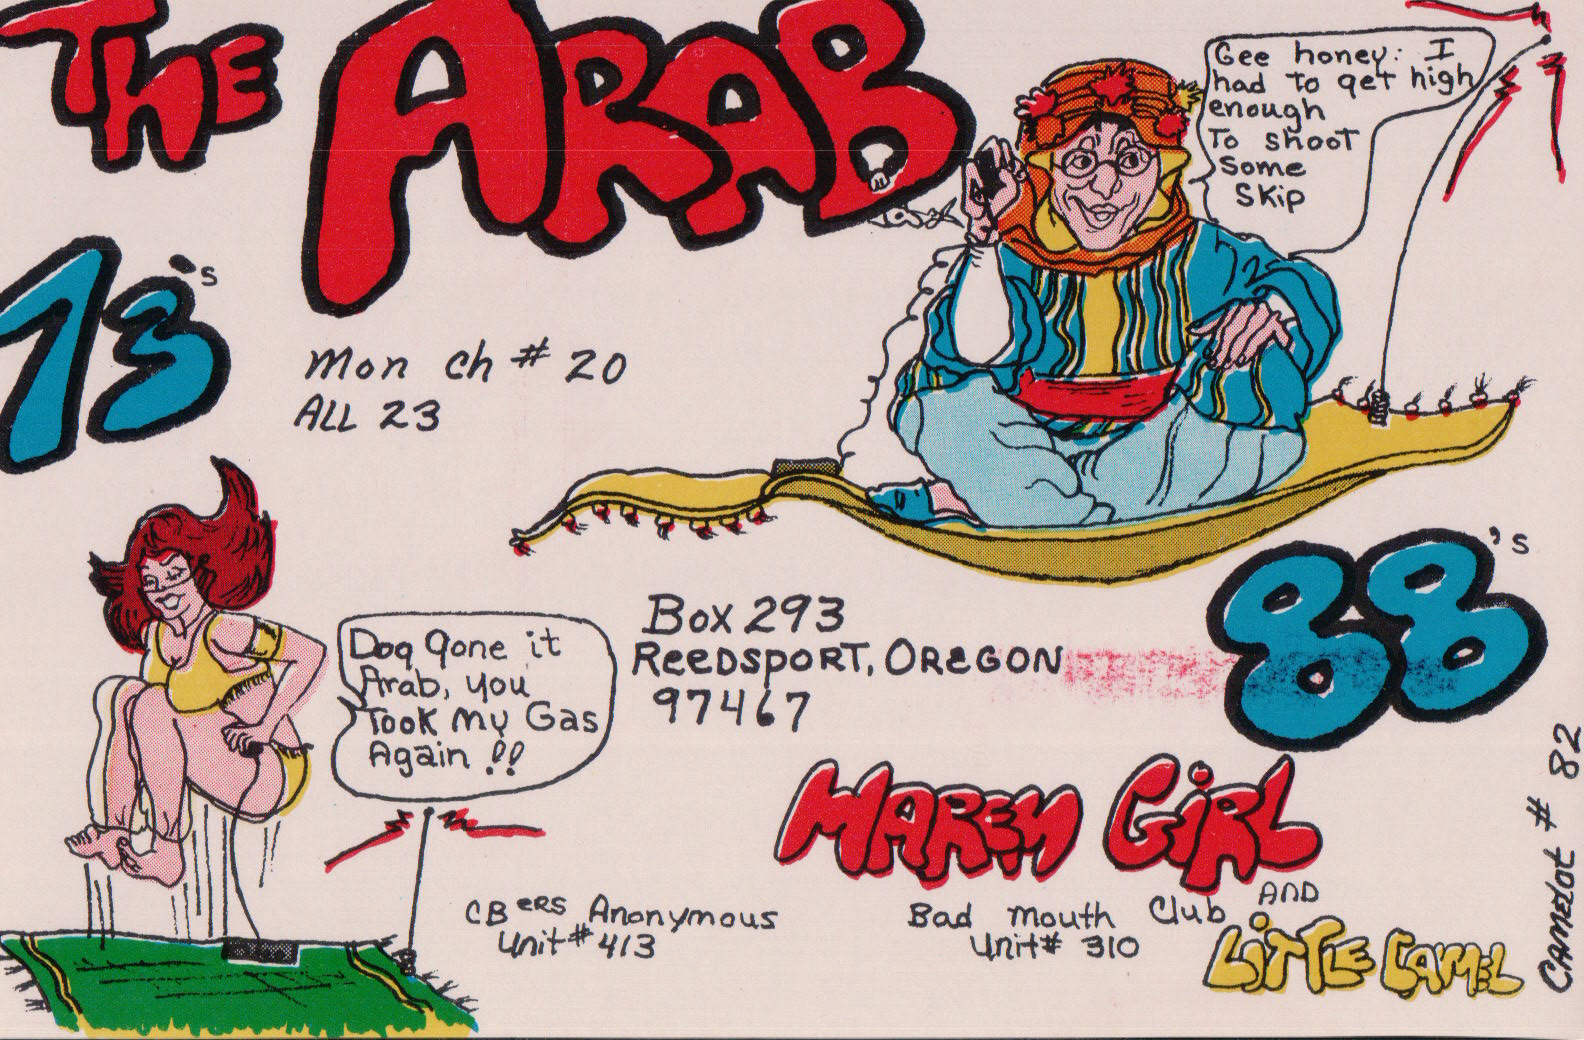 THE ARAB
Gee honey: I
had to get high
enough
To shoot
some
skip
73's
Mon ch # 20
ALL 23
88's
Dog gone it
Arab, you
Took my Gas
Again !!
Box 293
REEDSPORT, OREGON
97467
HAREM GIRL
AND
LITTLE CAMEL
CBers Anonymous
Unit # 413
Bad mouth Club
Unit # 310
CAMELOT # 82